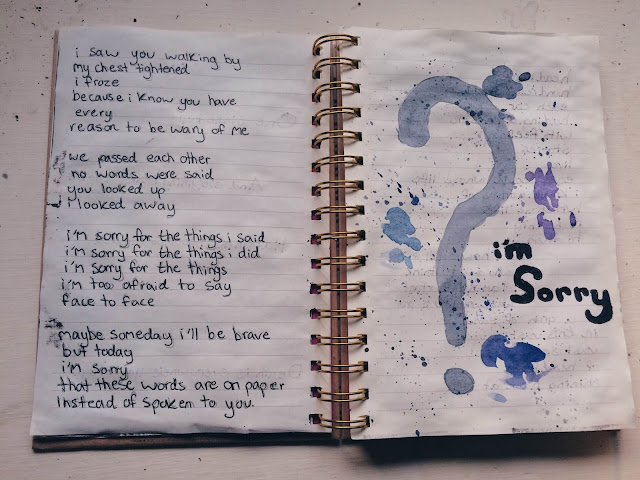 i saw you walking by
my chest tightened
i froze
because i know you have
every
reason to be wary of me
we passed each other
no words were said
you looked up
i looked away
i'm sorry for the things i said
i'm sorry for the things i did
i'm sorry for the things
i'm too afraid to say
face to face
maybe someday i'll be brave
but today
i'm sorry
that these words are on paper
instead of spoken to you.
?
i'm
Sorry